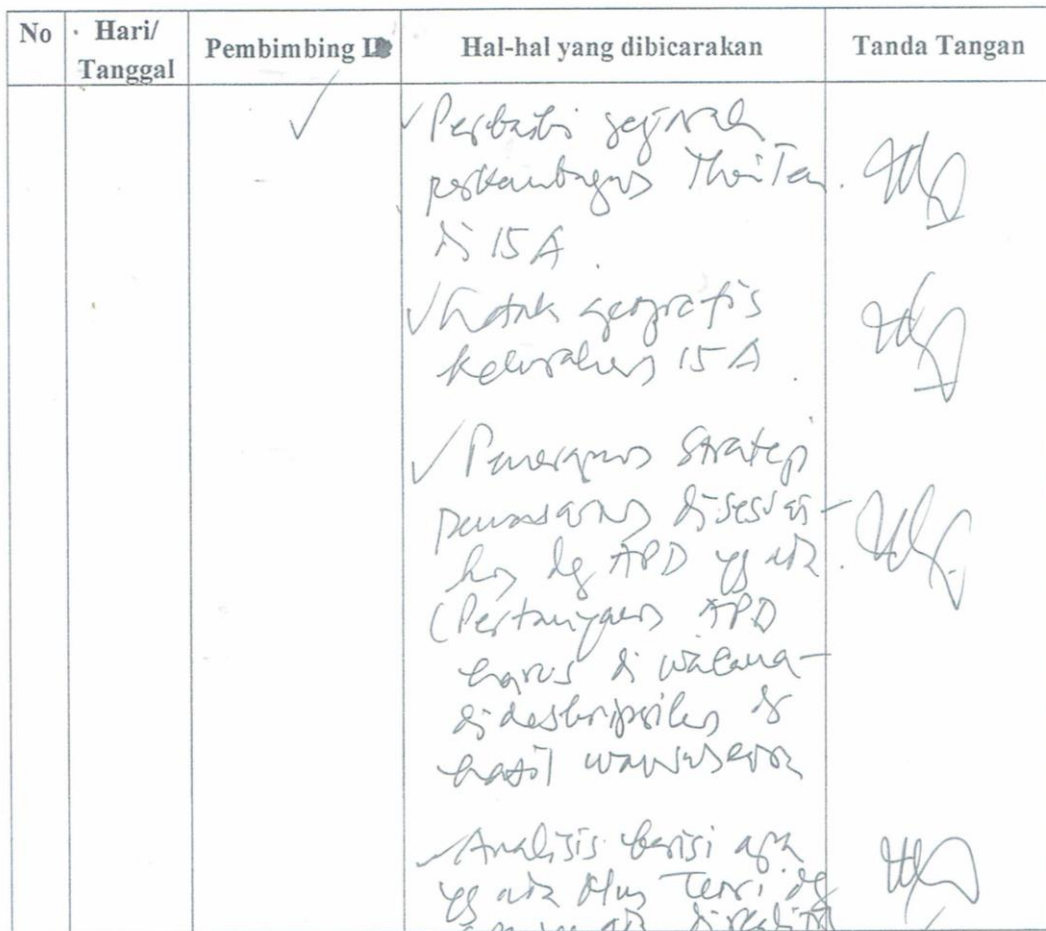 No Hari/ Tanggal Pembimbing Hal-hal yang dibicarakan Tanda Tangan
Perbaiki sejarah
perkembangan Thai Tea
di 15 A.
Letak geografis
Kelurahan 15 A.
Penerapan Strategi
pemasaran disesuai-
kan dg APD yg ada.
(Pertanyaan APD
harus di
dideskripsikan di
hasil wawancara
Analisis berisi apa
yg ada dlm Teori dg